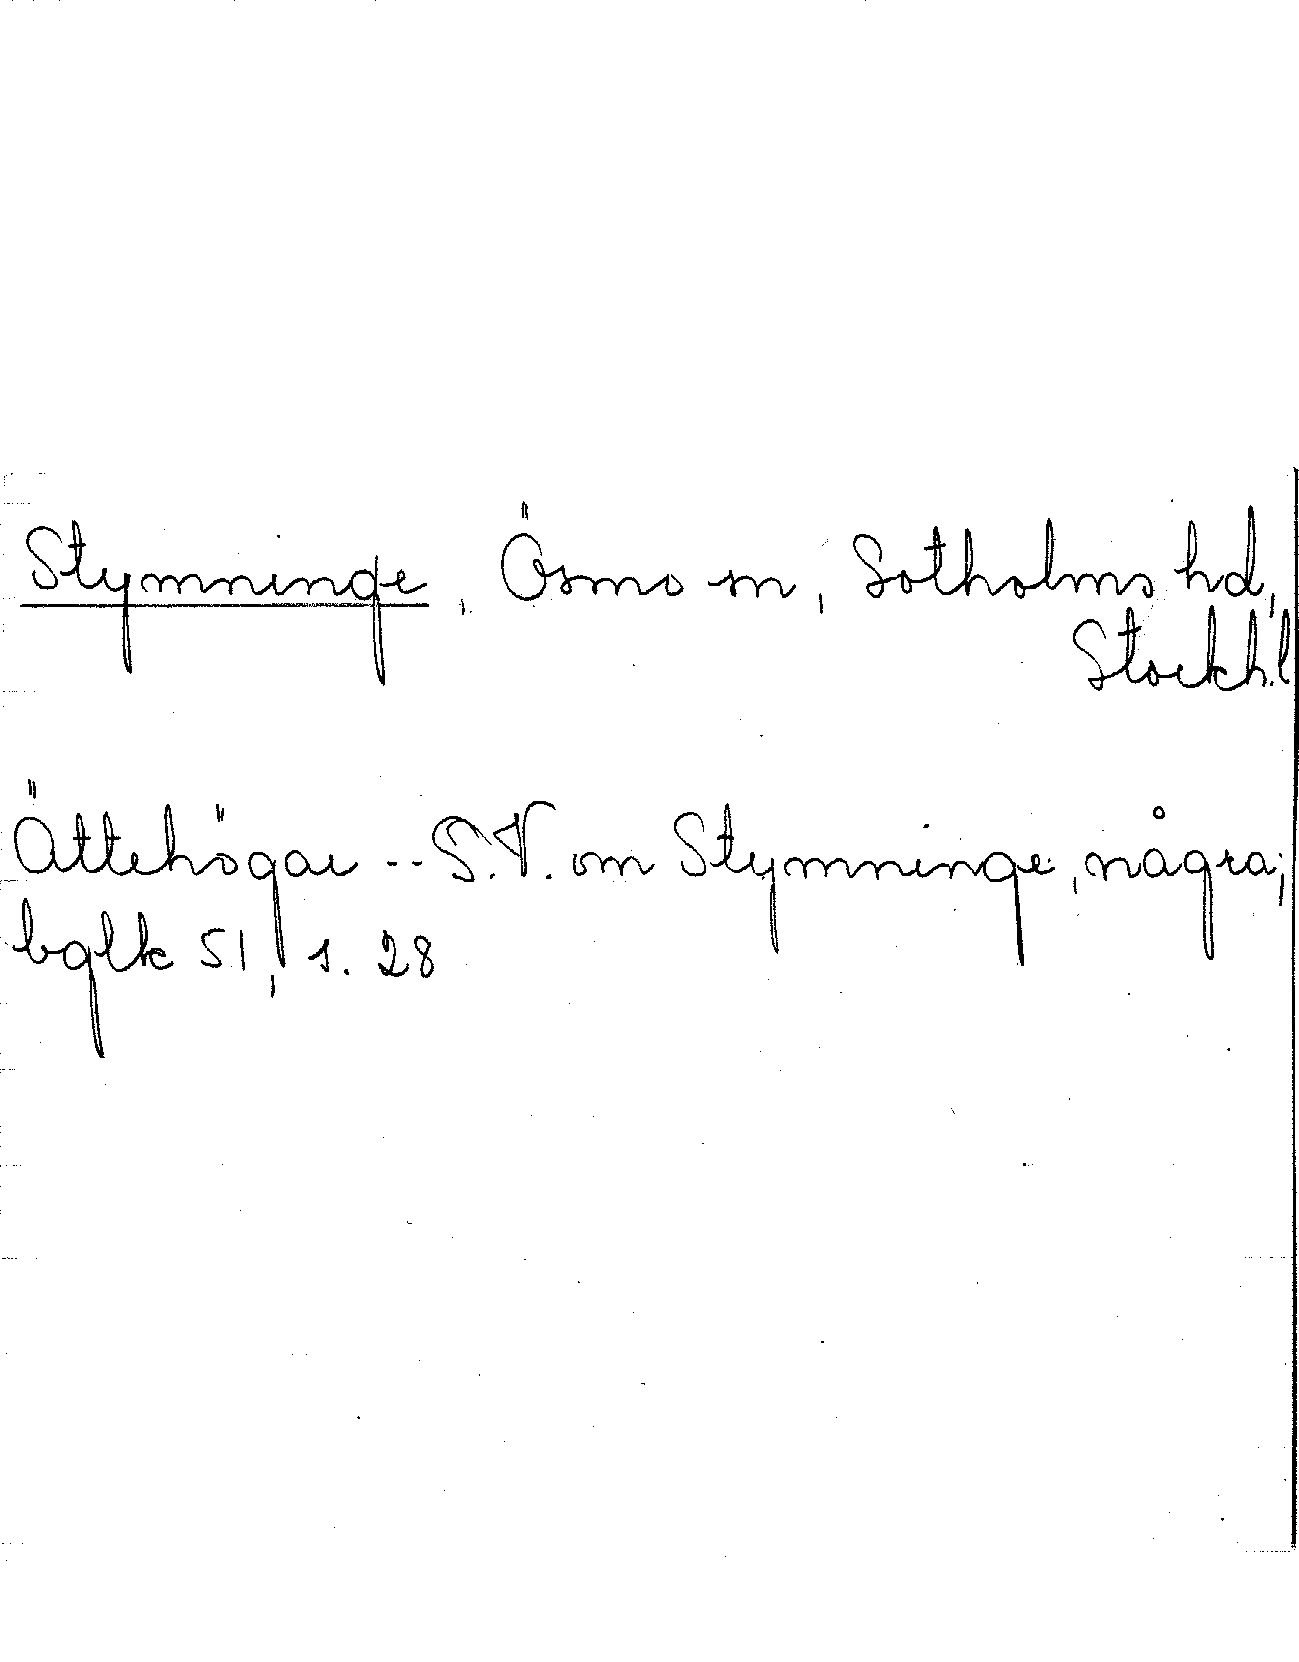 Stymninge, Ösmo sn, Sotholms hd,
Stockh.l
Ättehögar -- S.V. om Stymninge, några;
bglk 51, s. 28